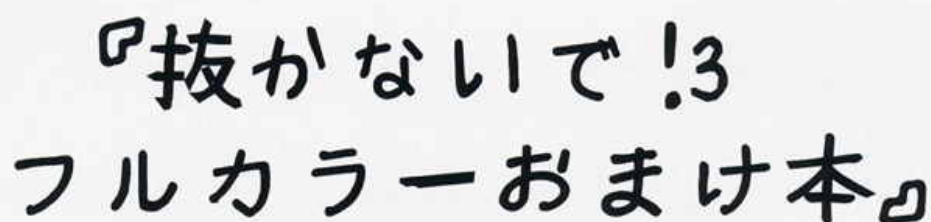 『抜かないで!3
フルカラーおまけ本』